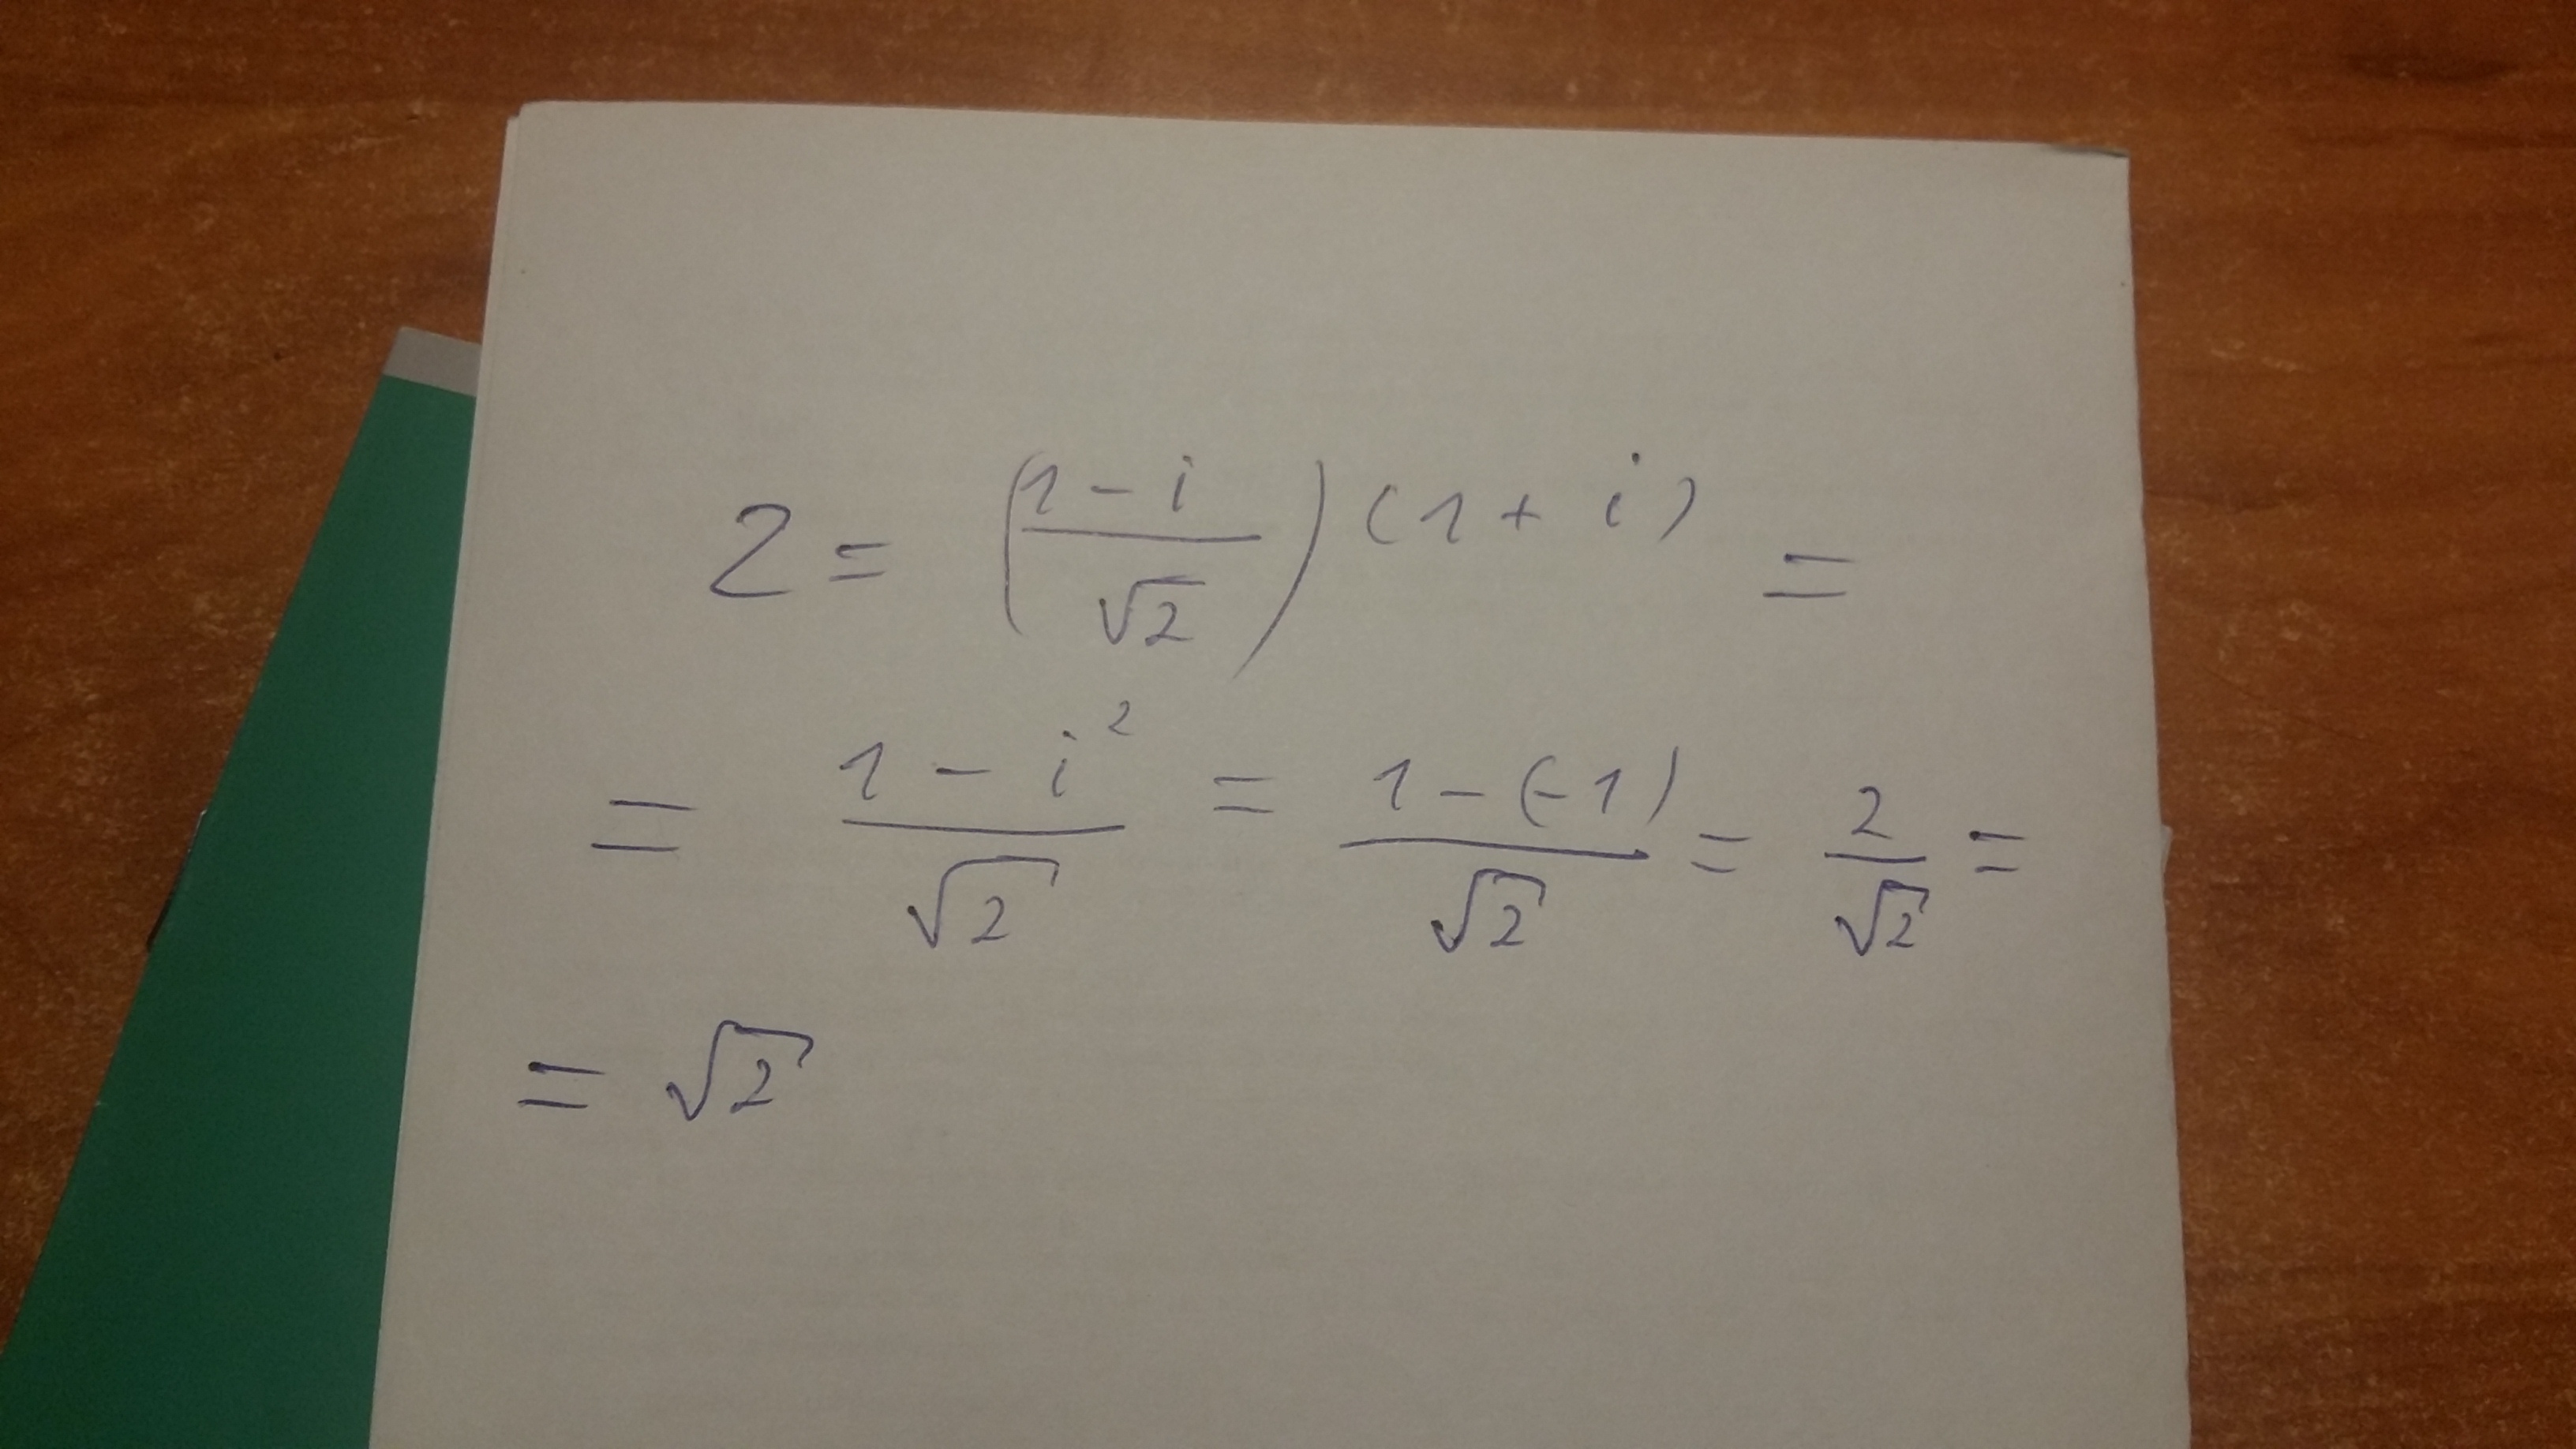 z = ((1 - i)/√2) (1 + i) =
= (1 - i²)/√2 = (1 - (-1))/√2 = 2/√2 =
= √2